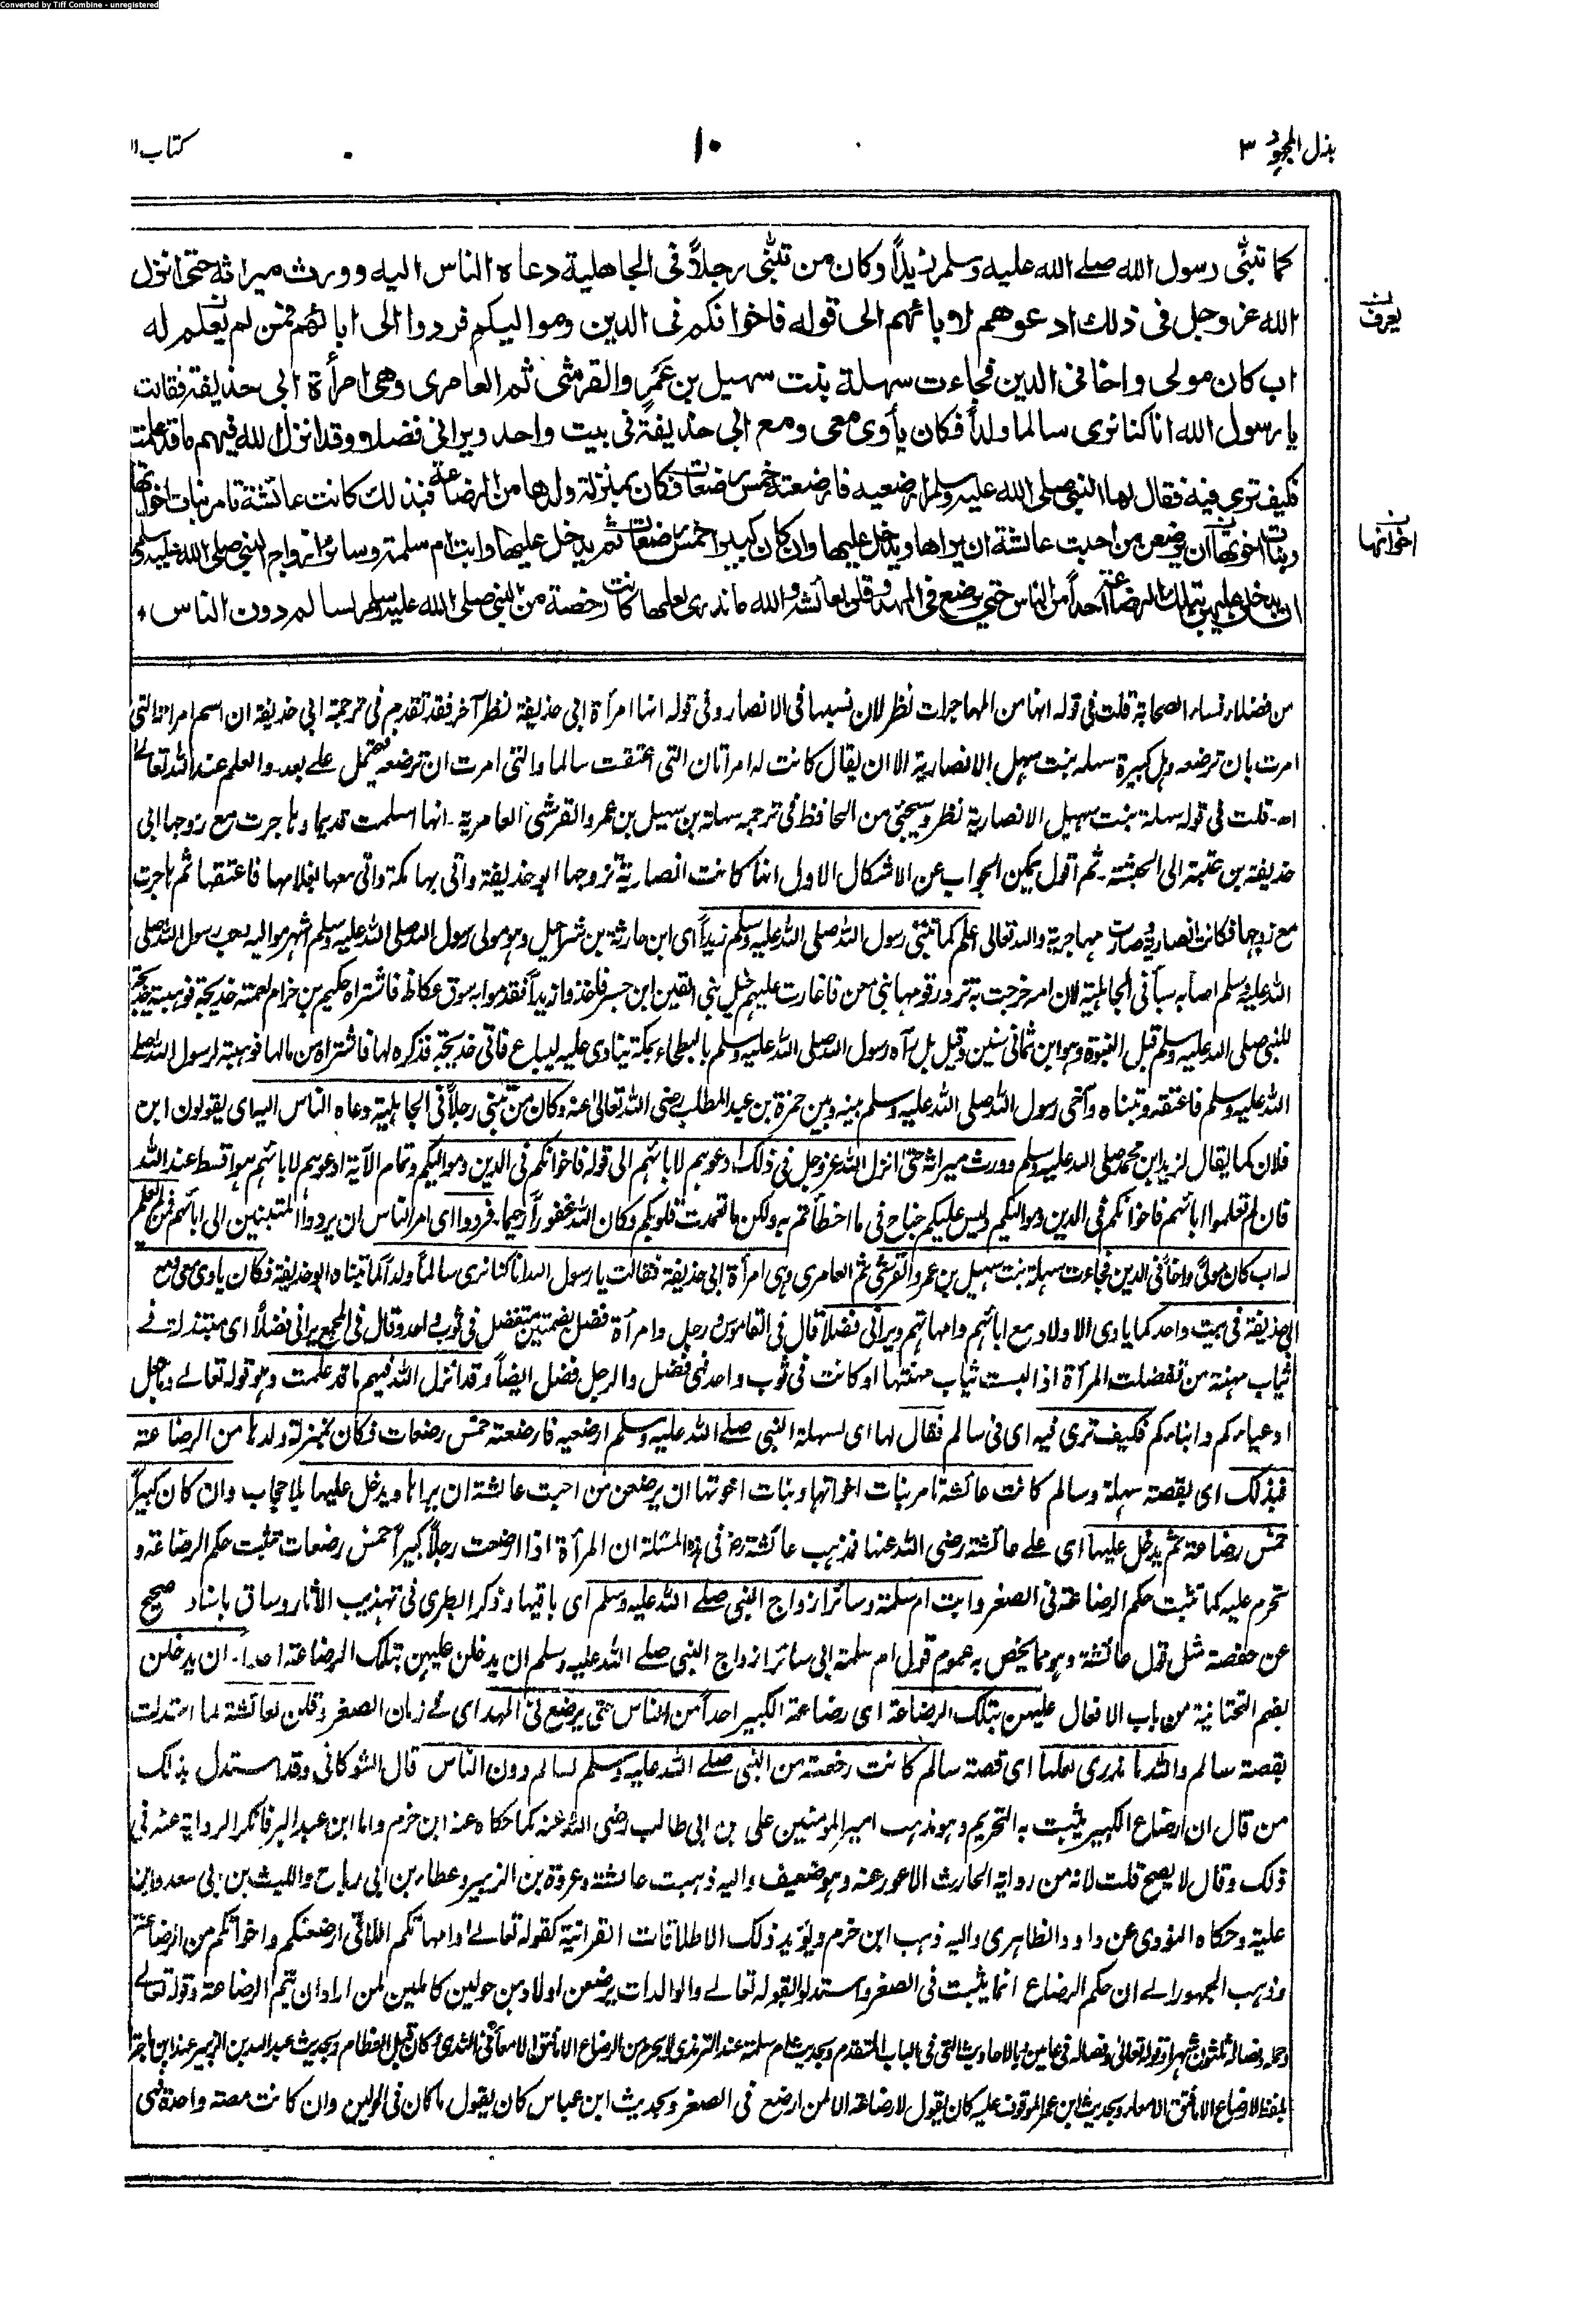 Converted by Tiff Combine - unregistered
بذل المجهود ٣
١٠
كتاب ا
كما تبنّى رسول الله صلے الله عليه وسلم زيداً وكان من تبنّى رجلاً فى الجاهلية دعاه الناس اليه وورث ميراثه حتى انزل
الله عز وجل فى ذلك ادعوهم لابائهم الى قوله فاخوانكم فى الدين ومواليكم فردوا الى ابائهم فمن لم يعلم له
يعرف
اب كان مولى واخا فى الدين فجاءت سهلة بنت سهيل بن عمرو القرشى ثم العامرى وهى امرأة ابى حذيفة فقالت
يا رسول الله انا كنا نرى سالما ولداً فكان يأوى معى ومع ابى حذيفة فى بيت واحد ويرانى فضلا وقد انزل الله فيهم ما قد علمت
فكيف ترى فيه فقال لها النبى صلى الله عليه وسلم ارضعيه فارضعته خمس رضعات فكان بمنزلة ولدها من الرضاعة فبذلك كانت عائشة تامر بنات اخواتها
وبنات اخوتها ان يرضعن من احبت عائشة ان يراها ويدخل عليها وان كان كبيرا خمس رضعات ثم يدخل عليها وابت ام سلمة وسائر ازواج النبى صلى الله عليه وسلم
اخواتها
ان يدخلن عليهن بتلك الرضاعة احداً من الناس حتى يرضع فى المهد وقلن لعائشة والله ما ندرى لعلها كانت رخصة من النبى صلى الله عليه وسلم لسالم دون الناس
من فضلاء نساء الصحابة قلت فى قوله انها من المهاجرات نظر لان نسبها فى الانصار وفى قوله انها امرأة ابى حذيفة نظر آخر فقد تقدم فى ترجمة ابى حذيفة ان اسم امرأته التى
امرت بان ترضعه وہل كبيرة سهله بنت سهيل الانصارية الا ان يقال كانت له امرأتان التى اعتقت سالما والتى امرت ان ترضعه فيحتمل علے بعد والعلم عند الله تعالے
اھ قلت فى قوله سهلة بنت سهيل الانصارية نظر وسيجئ من الحافظ فى ترجمه سهلة بن سهيل بن عمرو القرشى العامرية انها اسلمت قديما وهاجرت مع زوجها ابى
حذيفة بن عتبة الى الحبشة ثم اقول يمكن الجواب عن الاشكال الاول انها كانت انصارية تزوجها ابو حذيفة واتى بها مكة واتى معها بغلامها فاعتقها ثم هاجرت
مع زوجها فكانت انصارية وصارت مهاجرية والله تعالى اعلم كما تبنى رسول الله صلى الله عليه وسلم زيداً اى ابن حارثة بن شراحيل وهو مولى رسول الله صلى الله عليه وسلم اشهر مواليه يحب رسول الله صلى
الله عليه وسلم اصابه سبأ فى الجاهلية لان امه خرجت به تزور قومها بنى معن فاغارت عليهم خيل بنى القين ابن جسر فاخذوا زيداً فقدموا به سوق عكاظ فاشتراه حكيم بن حزام لعمته خديجة فوهبته خديجة
للنبى صلى الله عليه وسلم قبل النبوة وهو ابن ثمانى سنين وقيل بل رآه رسول الله صلى الله عليه وسلم بالبطحاء بمكة ينادى عليه ليباع فاتى خديجة فذكره لها فاشتراه من مالها فوهبته لرسول الله صلے
الله عليه وسلم فاعتقه وتبناه وآخى رسول الله صلى الله عليه وسلم بينه وبين حمزة بن عبد المطلب رضى الله تعالى عنه وكان من تبنى رجلاً فى الجاهلية دعاه الناس اليه اى يقولون ابن
فلان كما يقال لزيد ابن محمد صلى الله عليه وسلم وورث ميراثه حتى انزل الله عز وجل فى ذلك ادعوهم لابائهم الى قوله فاخوانكم فى الدين ومواليكم وتمام الآية ادعوهم لابائهم هو اقسط عند الله
فان لم تعلموا ابائهم فاخوانكم فى الدين ومواليكم وليس عليكم جناح فى ما اخطأتم به ولكن ما تعمدت قلوبكم وكان الله غفوراً رحيما فردوا اى امر الناس ان يردوا المتبنين الى ابائهم فمن لم يعلم
له اب كان مولى واخاً فى الدين فجاءت سهلة بنت سهيل بن عمرو القرشى ثم العامرى وہى امرأة ابى حذيفة فقالت يا رسول الله انا كنا نرى سالماً ولداً كما تبناه ابو حذيفة فكان ياوى معى ومع
ابى حذيفة فى بيت واحد كما ياوى الاولاد مع ابائهم وامهاتهم ويرانى فضلاً قال فى القاموس رجل وامرأة فضل بضمتين متفضل فى ثوب واحد وقال فى المجمع يرانى فضلاً اى متبذلة فے
ثياب مهنة من تفضلت المرأة اذا لبست ثياب مهنتها او كانت فى ثوب واحد فهى فضل والرجل فضل ايضاً وقد انزل الله فيهم ما قد علمت وهو قوله تعالے وما جعل
ادعياءكم وابناءكم فكيف ترى فيه اى فى سالم فقال لها اى لسهلة النبى صلے الله عليه وسلم ارضعيه فارضعته خمس رضعات فكان بمنزلة ولدها من الرضاعة
فبذلك اى بقصة سهلة وسالم كانت عائشة تامر بنات اخواتها وبنات اخوتها ان يرضعن من احبت عائشة ان يراها ويدخل عليها بلا حجاب وان كان كبيراً
خمس رضاعة ثم يدخل عليها اى علے عائشة رضى الله عنها فذهب عائشة رض فى هذه المسئلة ان المرأة اذا ارضعت رجلاً كبيراً خمس رضعات تثبت حكم الرضاعة و
تحرم عليه كما تثبت حكم الرضاعة فى الصغر وابت ام سلمة وسائر ازواج النبى صلے الله عليه وسلم اى باقيها وذكر الطبرى فى تهذيب الآثار وساق باسناد صحيح
عن حفصة مثل قول عائشة وهو مما يخص به عموم قول ام سلمة ابى سائر ازواج النبى صلے الله عليه وسلم ان يدخلن عليهن بتلك الرضاعة احداً ان يدخلن
بضم التحتانية من باب الافعال عليهن بتلك الرضاعة اى رضاعة الكبير احداً من الناس حتى يرضع فى المهد اى فے زمان الصغر وقلن لعائشة لما استدلت
بقصة سالم والله ما ندرى لعلها اى قصة سالم كانت رخصة من النبى صلے الله عليه وسلم لسالم دون الناس قال الشوكانى وقد استدل بذلك
من قال ان ارضاع الكبير يثبت به التحريم وهو مذهب امير المؤمنين على بن ابى طالب رضى الله عنه كما حكاه عنه ابن حزم واما ابن عبد البر فانكر الرواية عنه فى
ذلك وقال لا يصح قلت لانه من رواية الحارث الاعور عنه وهو ضعيف واليه ذهبت عائشة وعروة بن الزبير وعطاء بن ابى رباح والليث بن ابى سعد وابن
علية وحكاه النووى عن داود الظاهرى واليه ذهب ابن حزم ويؤيد ذلك الاطلاقات القرآنية كقوله تعالے وامهاتكم اللاتى ارضعنكم واخواتكم من الرضاعة
وذهب الجمهور الے ان حكم الرضاع انما يثبت فى الصغر واستدلوا بقوله تعالے والوالدات يرضعن اولادهن حولين كاملين لمن اراد ان يتم الرضاعة وقوله تعالے
وحمله وفصاله ثلثون شهرا وقوله تعالى وفصاله فى عامين وبالاحاديث التى فى الباب المتقدم وبحديث ام سلمة عند الترمذى لا يحرم من الرضاع الا ما فتق الامعاء فى الثدى وكان قبل الفطام وبحديث عبد الله بن الزبير عند ابن ماجة
بلفظ لا رضاع الا ما فتق الامعاء وبحديث ابن عمر الموقوف عليه كان يقول لا رضاعة الا لمن ارضع فى الصغر وبحديث ابن عباس كان يقول ما كان فى الحولين وان كانت مصة واحدة فهى